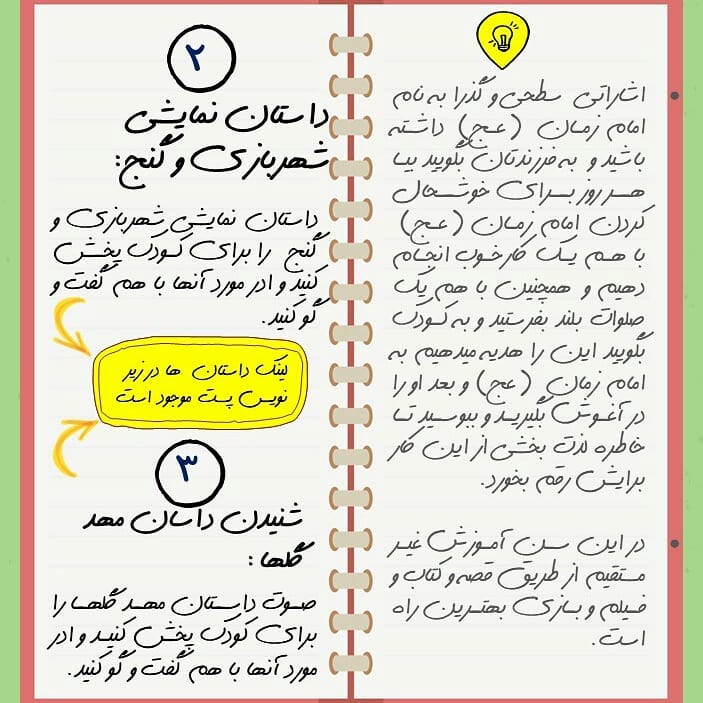 اشاراتی سطحی و گذرا به نام
امام زمان (عج) داشته
باشید و به فرزندتان بگویید بیا
هر روز برای خوشحال
کردن امام زمان (عج)
با هم یک کار خوب انجام
دهیم و همچنین با هم یک
صلوات بلند بفرستید و به کودک
بگویید این را هدیه میدهیم به
امام زمان (عج) و بعد او را
در آغوش بگیرید و ببوسید تا
خاطره لذت بخشی از این کار
برایش رقم بخورد.
در این سن آموزش غیر
مستقیم از طریق قصه و کتاب و
فیلم و بازی بهترین راه
است.
۲
داستان نمایشی
شهربازی و گنج:
داستان نمایشی شهربازی و
گنج را برای کودک پخش
کنید و ادر مورد آنها با هم گفت و
گو کنید.
لینک داستان ها در زیر
نویس پست موجود است
۳
شنیدن داسان مهد
گلها:
صوت داستان مهد گلها را
برای کودک پخش کنید و ادر
مورد آنها با هم گفت و گو کنید.